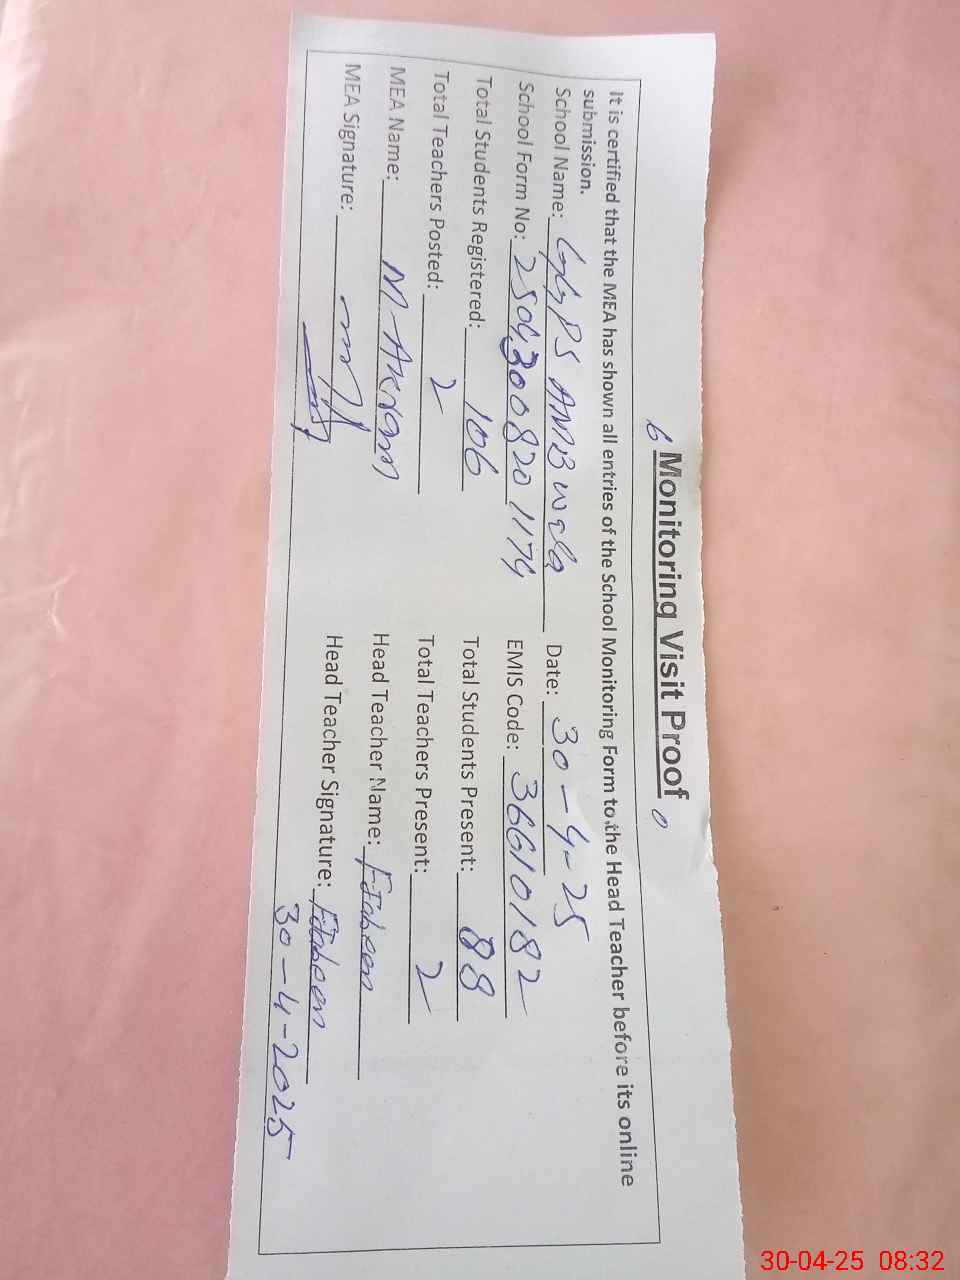 Monitoring Visit Proof
It is certified that the MEA has shown all entries of the School Monitoring Form to the Head Teacher before its online
submission.
School Name: PS Date: 30-4-25
School Form No: EMIS Code: 36610182
Total Students Registered: 106 Total Students Present: 88
Total Teachers Posted: 2 Total Teachers Present: 2
MEA Name: M. Akram Head Teacher Name:
MEA Signature: Head Teacher Signature:
30-4-2025
30-04-25 08:32